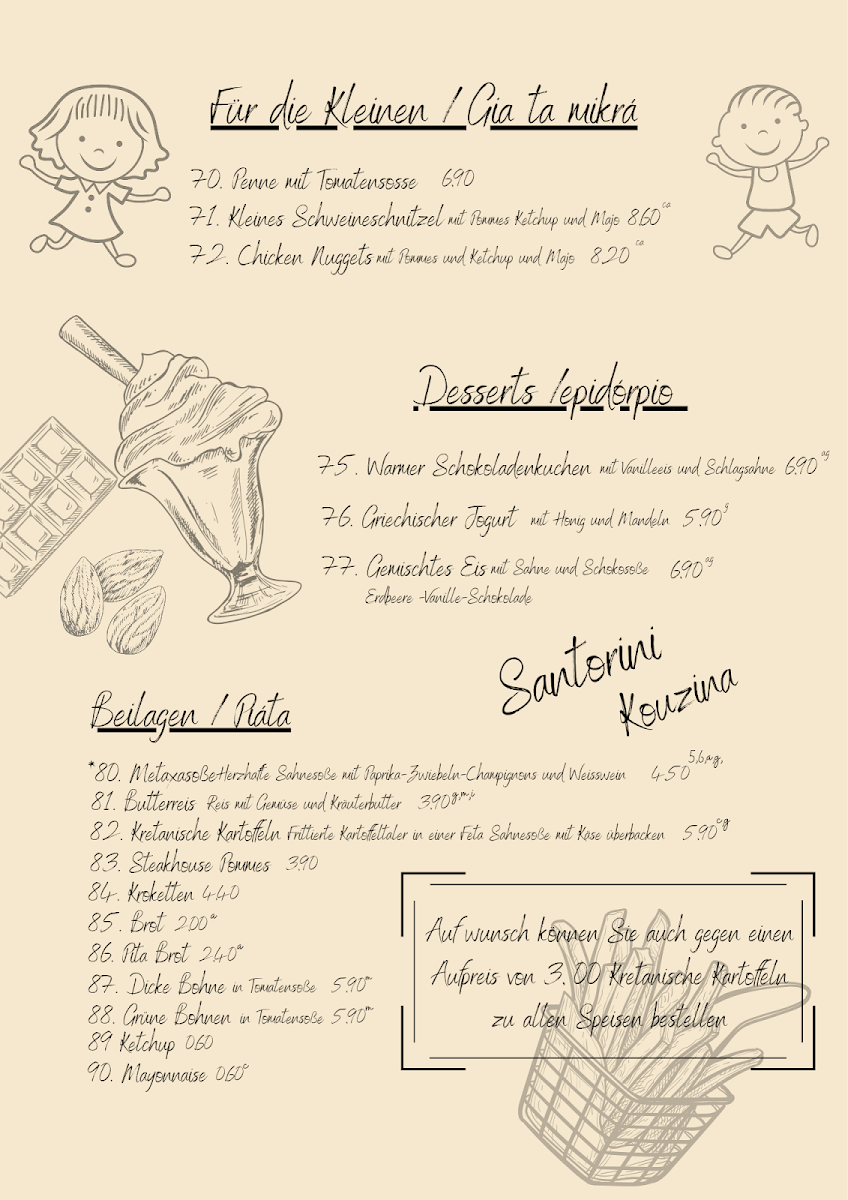 Für die Kleinen / Gia ta mikrá
70. Penne mit Tomatensosse 6.90
71. Kleines Schweineschnitzel mit Pommes Ketchup und Majo 8.60 ca
72. Chicken Nuggets mit Pommes und Ketchup und Majo 8.20 ca
Desserts /epidórpio
75. Warmer Schokoladenkuchen mit Vanilleeis und Schlagsahne 6.90 ag
76. Griechischer Jogurt mit Honig und Mandeln 5.90 g
77. Gemischtes Eis mit Sahne und Schokosoße 6.90 ag
Erdbeere -Vanille-Schokolade
Santorini
Kouzina
Beilagen / Piáta
*80. Metaxasoße-Herzhafte Sahnesoße mit Paprika-Zwiebeln-Champignons und Weisswein 4.50
81. Butterreis Reis mit Gemüse und Kräuterbutter 3.90
82. Kretanische Kartoffeln Frittierte Kartoffeltaler in einer Feta Sahnesoße mit Käse überbacken 5.90 cg
83. Steakhouse Pommes 3.90
84. Kroketten 4.40
85. Brot 2.00 a
86. Pita Brot 2.40 a
87. Dicke Bohne in Tomatensoße 5.90 m
88. Grüne Bohnen in Tomatensoße 5.90 m
89 Ketchup 0.60
90. Mayonnaise 0.60 c
Auf wunsch können Sie auch gegen einen
Aufpreis von 3, 00 Kretanische Kartoffeln
zu allen Speisen bestellen